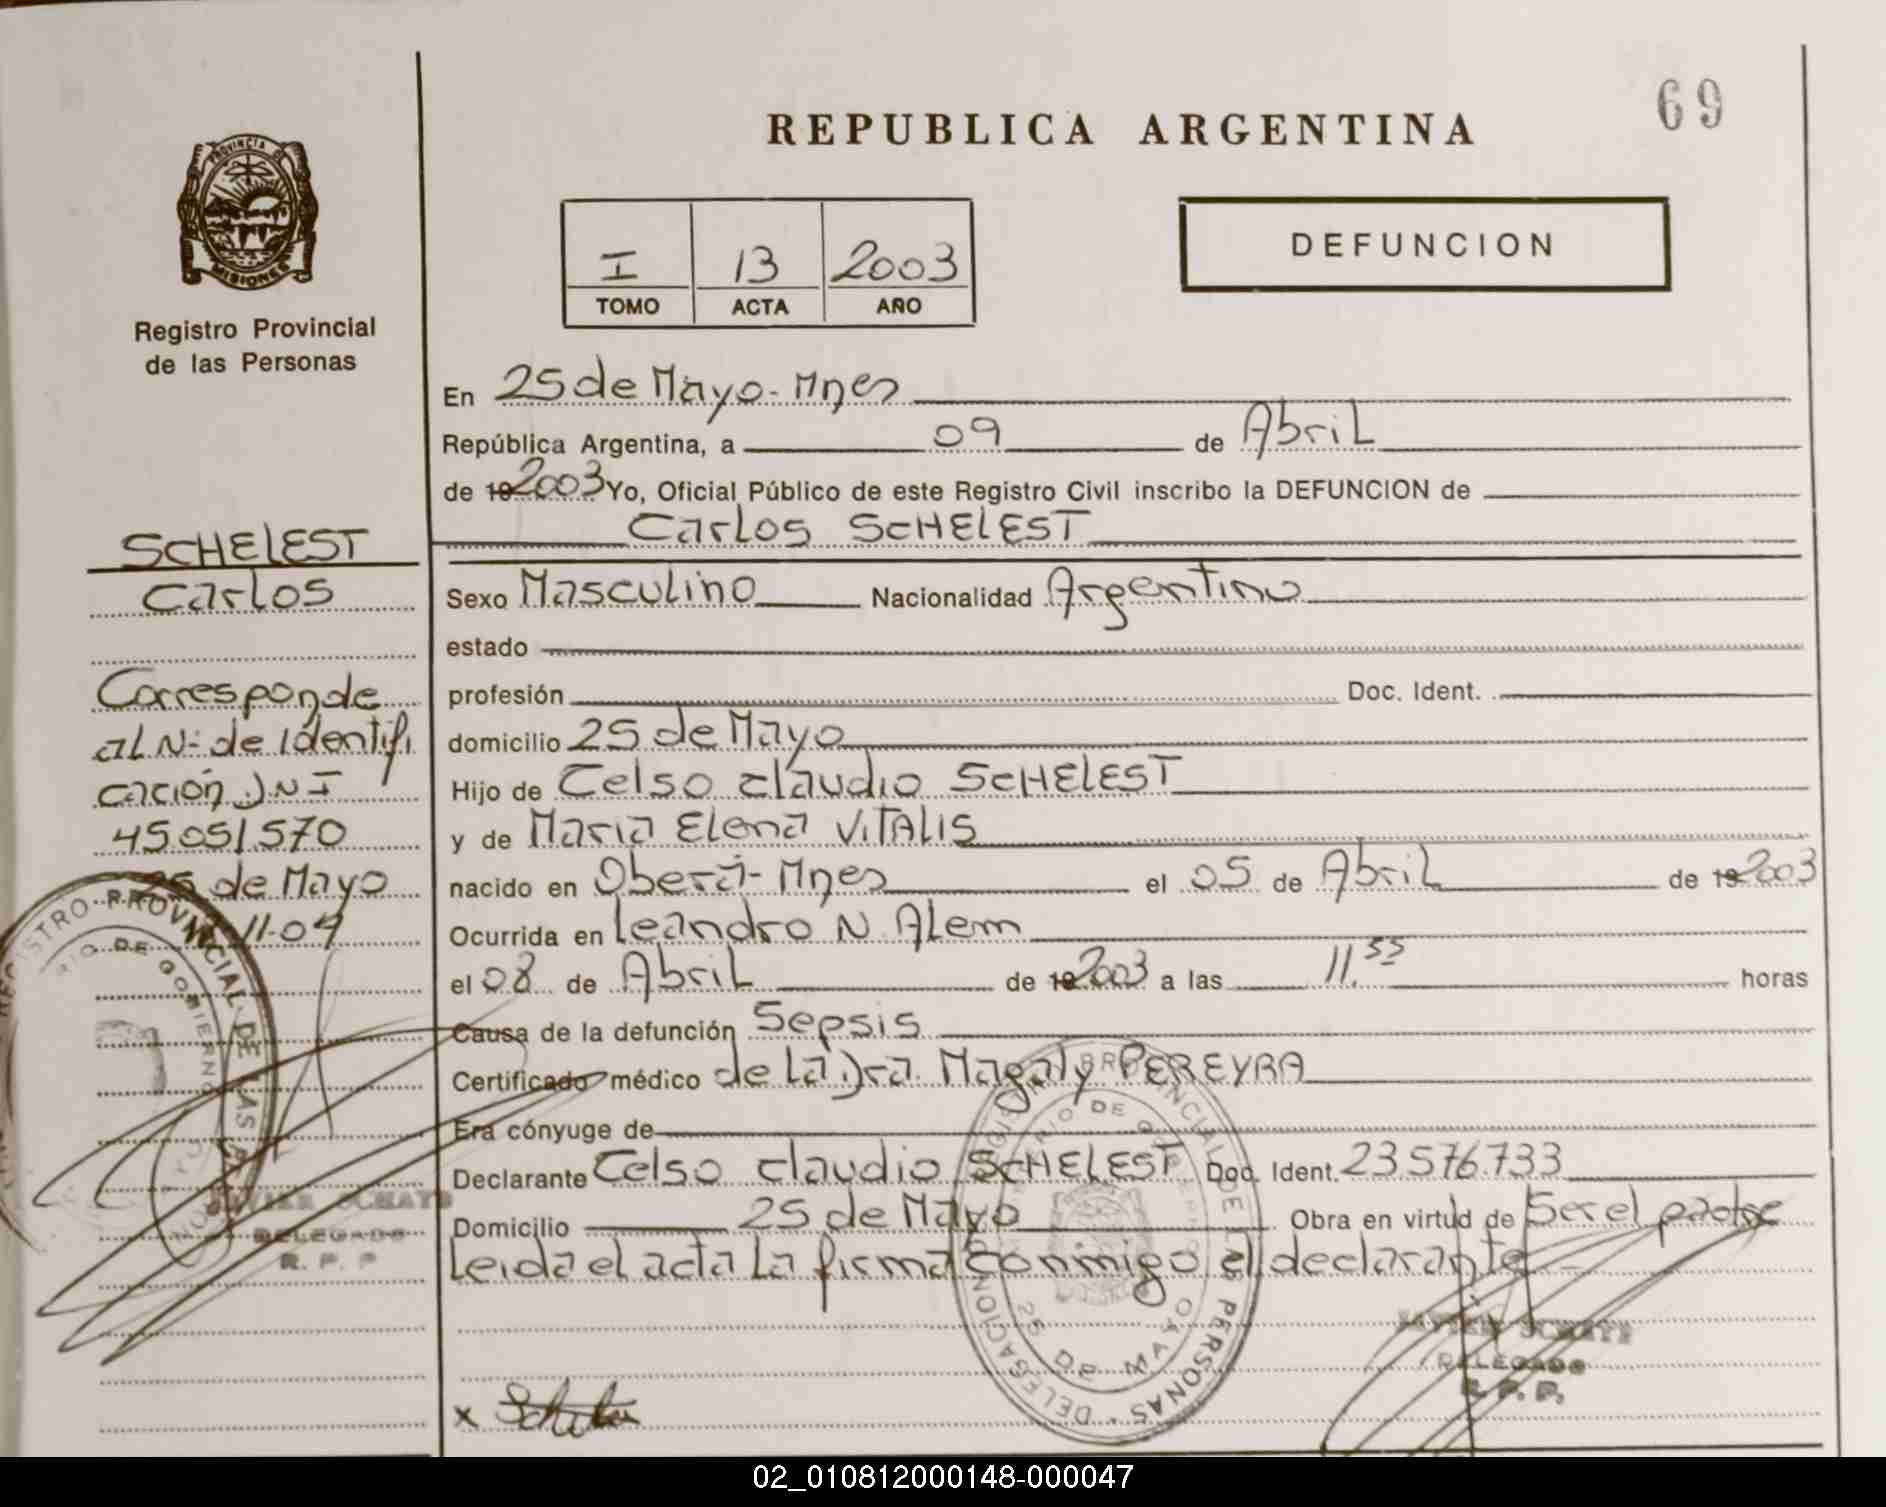 69
REPUBLICA ARGENTINA
PROVINCIA DE
MISIONES
Registro Provincial
de las Personas
I 13 2003
TOMO ACTA AÑO
DEFUNCION
En 25 de Mayo - Mnes
República Argentina, a 09 de Abril
de 19 2003 Yo, Oficial Público de este Registro Civil inscribo la DEFUNCION de
Carlos SCHELEST
SCHELEST
Carlos
Corresponde
al Nº de Identifi
cación D.N.I
45.051.570
25 de Mayo
11-04
Sexo Masculino Nacionalidad Argentino
estado
profesión Doc. Ident.
domicilio 25 de Mayo
Hijo de Celso Claudio SCHELEST
y de Maria Elena VITALIS
nacido en Oberá - Mnes el 05 de Abril de 19 2003
Ocurrida en Leandro N. Alem
el 08 de Abril de 19 2003 a las 11.55 horas
Causa de la defunción Sepsis
Certificado médico de la Dra. Magaly PEREYRA
Era cónyuge de
Declarante Celso Claudio SCHELEST Doc. Ident. 23.576.733
Domicilio 25 de Mayo Obra en virtud de Ser el padre
Leida el acta la firma conmigo el declarante
x
REGISTRO PROVINCIAL DE LAS
DE GOBIERNO
JAVIER SCHAYE
DELEGADO
R. P. P.
REGISTRO PROVINCIAL DE LAS PERSONAS - DELEGACION
25 DE MAYO
JAVIER SCHAYE
DELEGADO
R. P. P.
02_010812000148-000047